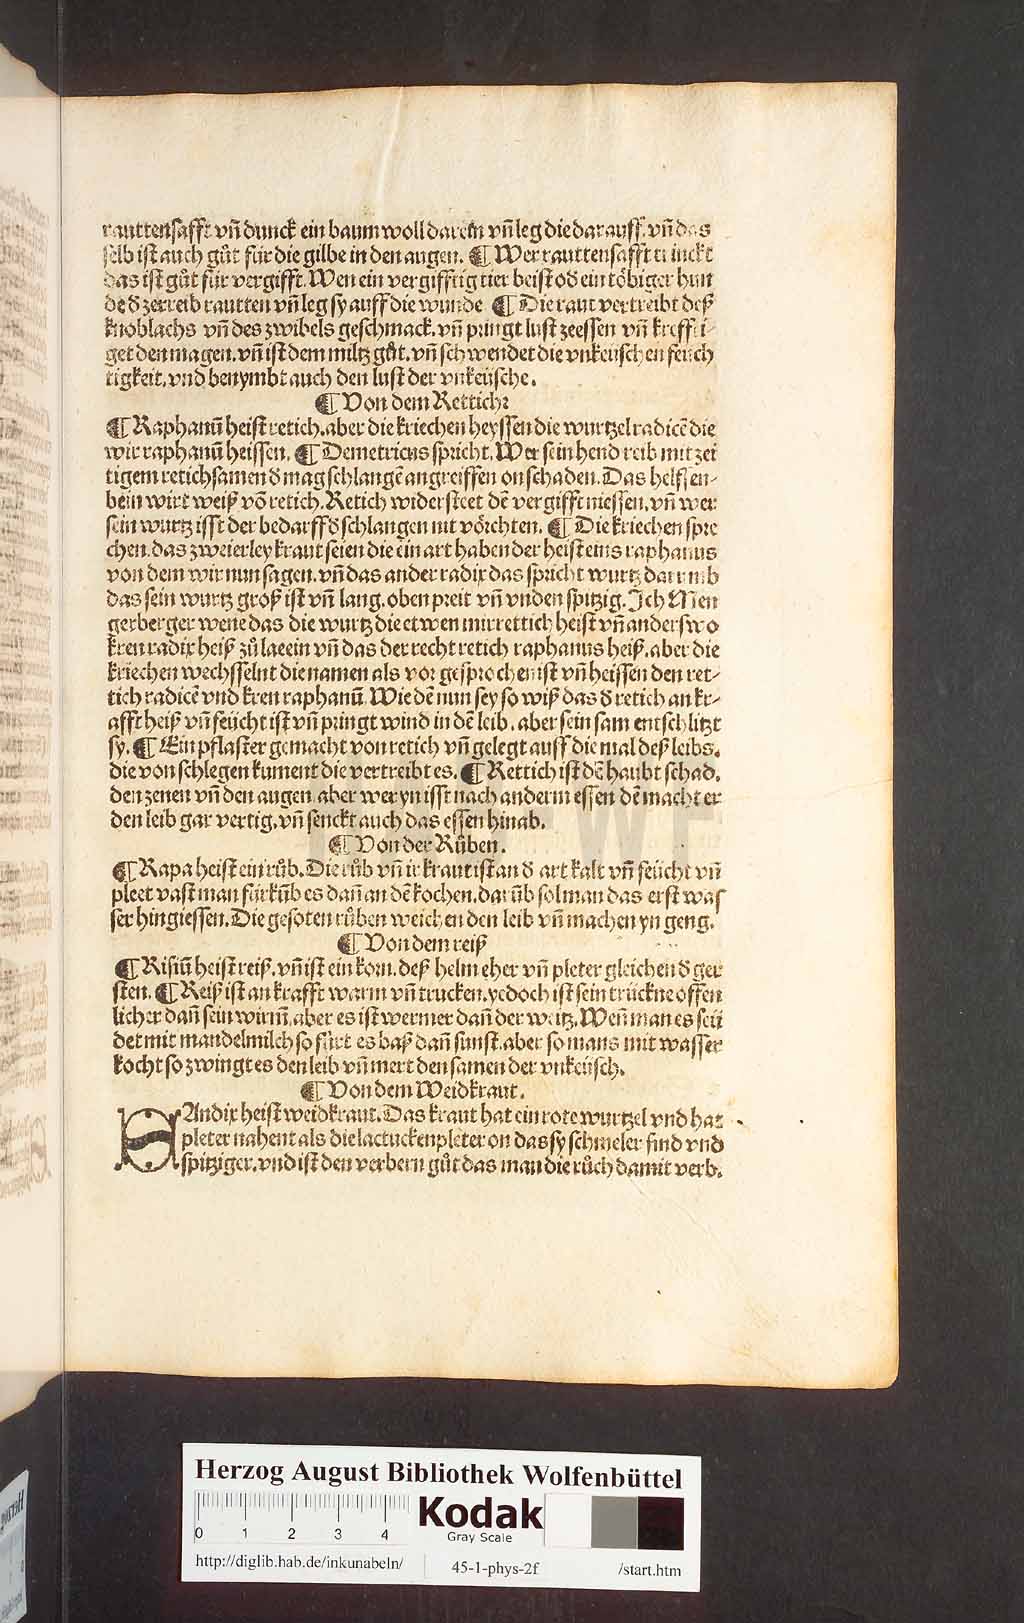 rauttensafft vñ dunck ein baum woll darein vñ leg die darauff. vñ das
selb ist auch gůt für die gilbe in den augen. ¶ Wer rauttensafft trinckt
das ist gůt für vergifft. Wen ein vergifftig tier beist od ein töbiger hun
de đ zerreib rautten vñ leg sy auff die wunde ¶ Die raut vertreibt deß
knoblachs vñ des zwibels geschmack. vñ pringt lust zeessen vñ krefftti-
get den magen. vñ ist dem miltz gůt. vñ schwendet die vnkeüschen feüch
tigkeit. vnd benymbt auch den lust der vnkeüsche.
¶ Von dem Rettich:
¶ Raphanū heist retich. aber die kriechen heyssen die wurtzel radicē die
wir raphanū heissen. ¶ Demetricus spricht. Wer sein hend reib mit zei
tigem retichsamen đ mag schlangē angreiffen on schaden. Das helffen-
bein wirt weiß võ retich. Retich widersteet dē vergifft niessen. vñ wer
sein wurtz isst der bedarff đ schlangen nit vörchten. ¶ Die kriechen spre
chen. das zweierley kraut seien die ein art haben der heist eins raphanus
von dem wir nun sagen. vñ das ander radix das spricht wurtz darumb
das sein wurtz groß ist vñ lang. oben preit vñ vnden spitzig. Ich Men
gerberger wene das die wurtz die etwen mirrettich heist vñ anderswo
kren radix heiß zů laeein vñ das der recht retich raphanus heiß. aber die
kriechen wechsselnt die namen als vor gesprochen ist vñ heissen den ret-
tich radicē vnd kren raphanū. Wie dē nun sey so wiß das đ retich an kr-
afft heiß vñ feücht ist vñ pringt wind in dē leib. aber sein sam entschlitzt
sy. ¶ Ein pflaster gemacht von retich vñ gelegt auff die mal deß leibs.
die von schlegen kument die vertreibt es. ¶ Rettich ist dē haubt schad.
den zenen vñ den augen. aber wer yn isst nach anderm essen dē macht er
den leib gar vertig. vñ senckt auch das essen hinab.
¶ Von der Růben.
¶ Rapa heist ein růb. Die růb vñ ir kraut ist an đ art kalt vñ feücht vñ
pleet vast man fürkūb es dañ an dē kochen. darūb sol man das erst was
ser hingiessen. Die gesoten růben weichen den leib vñ machen yn geng.
¶ Von dem reiß
¶ Risiū heist reiß. vñ ist ein korn. deß helm eher vñ pleter gleichen đ ger
sten. ¶ Reiß ist an krafft warm vñ trucken. yedoch ist sein trückne offen
licher dañ sein wirm̄. aber es ist wermer dañ der weitz. Weñ man es seü
det mit mandelmilch so fůrt es baß dañ sunst. aber so mans mit wasser
kocht so zwingt es den leib vñ mert den samen der vnkeüsch.
¶ Von dem Weidkraut.
SAndix heist weidkraut. Das kraut hat ein rote wurtzel vnd hat
pleter nahent als die lactucken pleter on das sy schmeler sind vnd
spitziger. vnd ist den verbern gůt das man die růch damit verb.
Herzog August Bibliothek Wolfenbüttel
0 1 2 3 4
Kodak
Gray Scale
http://diglib.hab.de/inkunabeln/ 45-1-phys-2f /start.htm